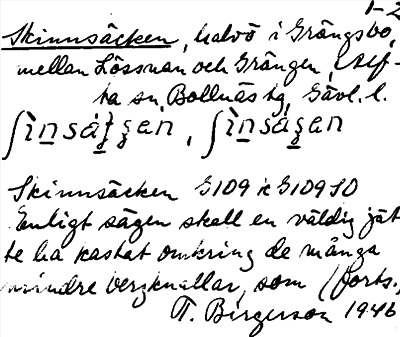 1-2
Skinnsäcken, halvö i Grängsbo,
mellan Lössnan och Grängen, Alf-
ta sn, Bollnäs tg, Gävl. l.
Skinnsäcken G109 ic G109 SO
Enligt sägen skall en väldig jät
te ha kastat omkring de många
mindre bergknallar, som (forts.)
T. Birgerson 1946